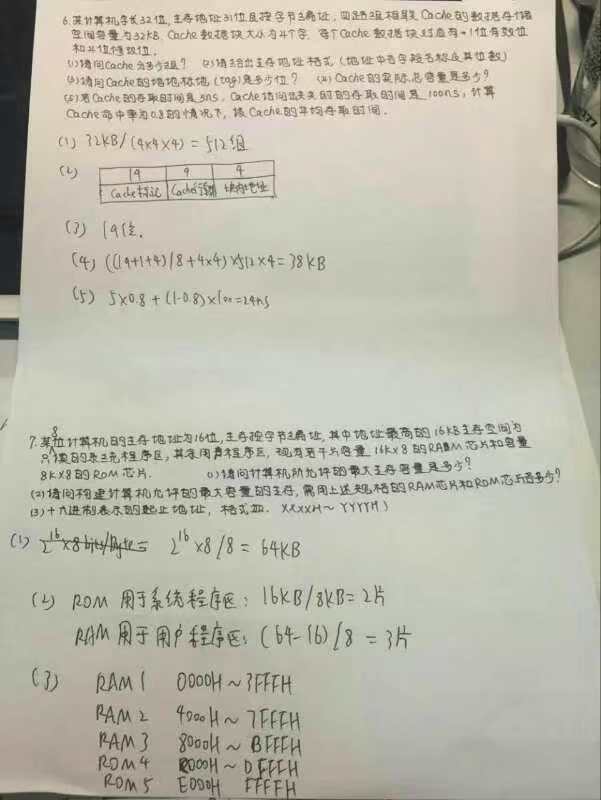 6.某计算机字长32位,主存地址31位且按字节编址,四路组相联Cache的数据存储
空间容量为32KB,Cache数据块大小为4个字,每个Cache数据块对应有1位有效位
和4位修改位.
(1)请问Cache分多少组? (2)请给出主存地址格式(地址中各字段名称及其位数)
(3)请问Cache的标记(tag)是多少位? (4)Cache的实际总容量是多少?
(5)若Cache的存取时间是5ns,Cache访问缺失时的存取时间是100ns,计算
Cache命中率为0.8的情况下,该Cache的平均存取时间.
(1) 32KB/(4×4×4)=512组
(2) 19 9 4
Cache标记 Cache组 块内地址
(3) 19位.
(4) ((19+1+4)/8+4×4)×512×4=38KB
(5) 5×0.8+(1-0.8)×100=24ns
8
7.某位计算机的主存地址为16位,主存按字节编址,其中地址最高的16KB主存空间为
只读的系统程序区,其余用户程序区,现有若干片容量16K×8的RAM芯片和容量
8K×8的ROM芯片. (1)请问计算机所允许的最大主存容量是多少?
(2)请问构建计算机允许的最大容量的主存,需用上述规格的RAM芯片和ROM芯片各多少?
(3)十六进制表示的起止地址,格式如.XXXXH~YYYYH)
(1) 2^16×8bits/Byte= 2^16×8/8=64KB
(2) ROM用于系统程序区:16KB/8KB=2片
RAM用于用户程序区:(64-16)/8=3片
(3) RAM1 0000H~3FFFH
RAM2 4000H~7FFFH
RAM3 8000H~BFFFH
ROM4 000H~DFFFH
ROM5 E000H FFFFH